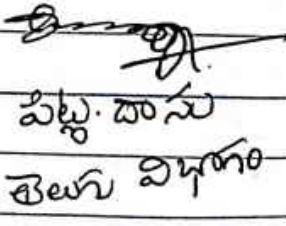 పిట్ల. దాసు
తెలుగు విభాగం